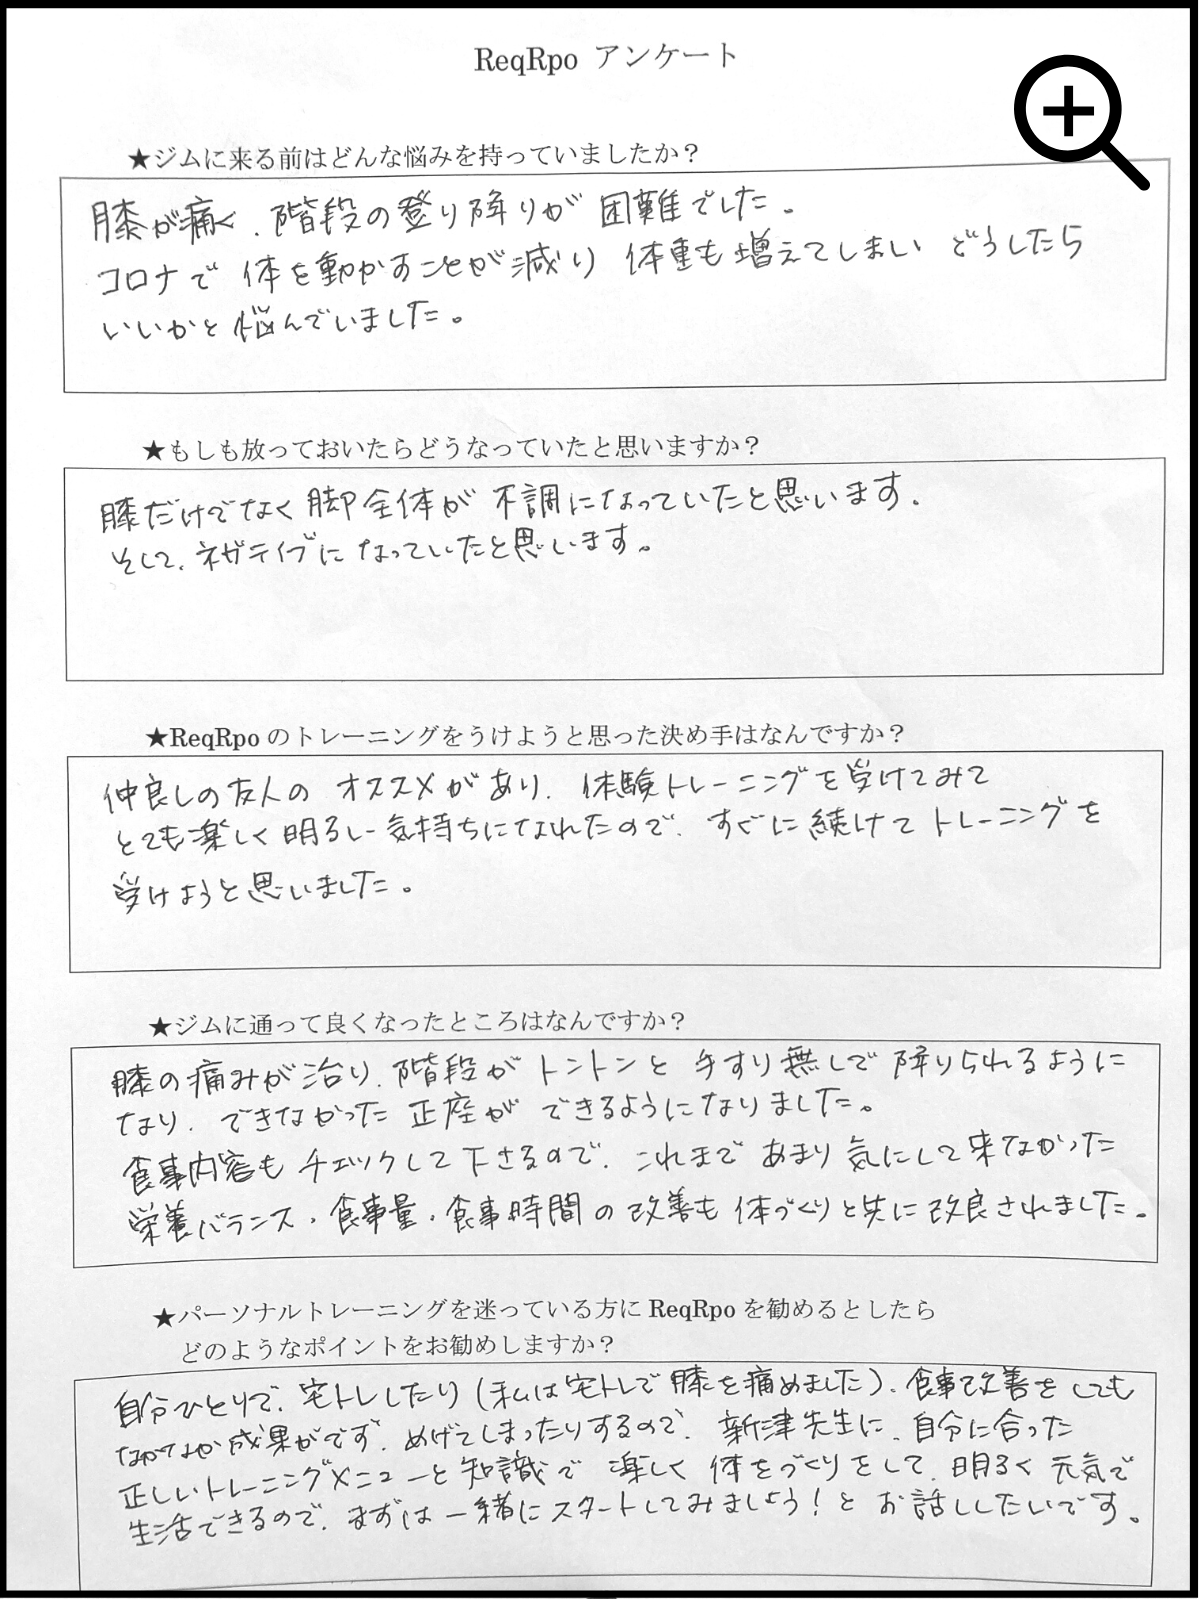 ReqRpo アンケート
★ジムに来る前はどんな悩みを持っていましたか？
膝が痛く、階段の登り降りが困難でした。
コロナで体を動かすことが減り体重も増えてしまいどうしたら
いいかと悩んでいました。
★もしも放っておいたらどうなっていたと思いますか？
膝だけでなく脚全体が不調になっていたと思います。
そして、ネガティブになっていたと思います。
★ReqRpoのトレーニングをうけようと思った決め手はなんですか？
仲良しの友人のオススメがあり、体験トレーニングを受けてみて
とても楽しく明るい気持ちになれたので、すぐに続けてトレーニングを
受けようと思いました。
★ジムに通って良くなったところはなんですか？
膝の痛みが治り、階段がトントンと手すり無しで降りられるように
なり、できなかった正座ができるようになりました。
食事内容もチェックして下さるので、これまであまり気にして来なかった
栄養バランス・食事量・食事時間の改善も体づくりと共に改良されました。
★パーソナルトレーニングを迷っている方に ReqRpo を勧めるとしたら
どのようなポイントをお勧めしますか？
自分ひとりで、宅トレしたり（私は宅トレで膝を痛めました）、食事改善をしても
なかなか成果がです、めげてしまったりするので、新津先生に、自分に合った
正しいトレーニングメニューと知識で楽しく体をづくりをして、明るく元気で
生活できるので、まずは一緒にスタートしてみましょう！とお話ししたいです。